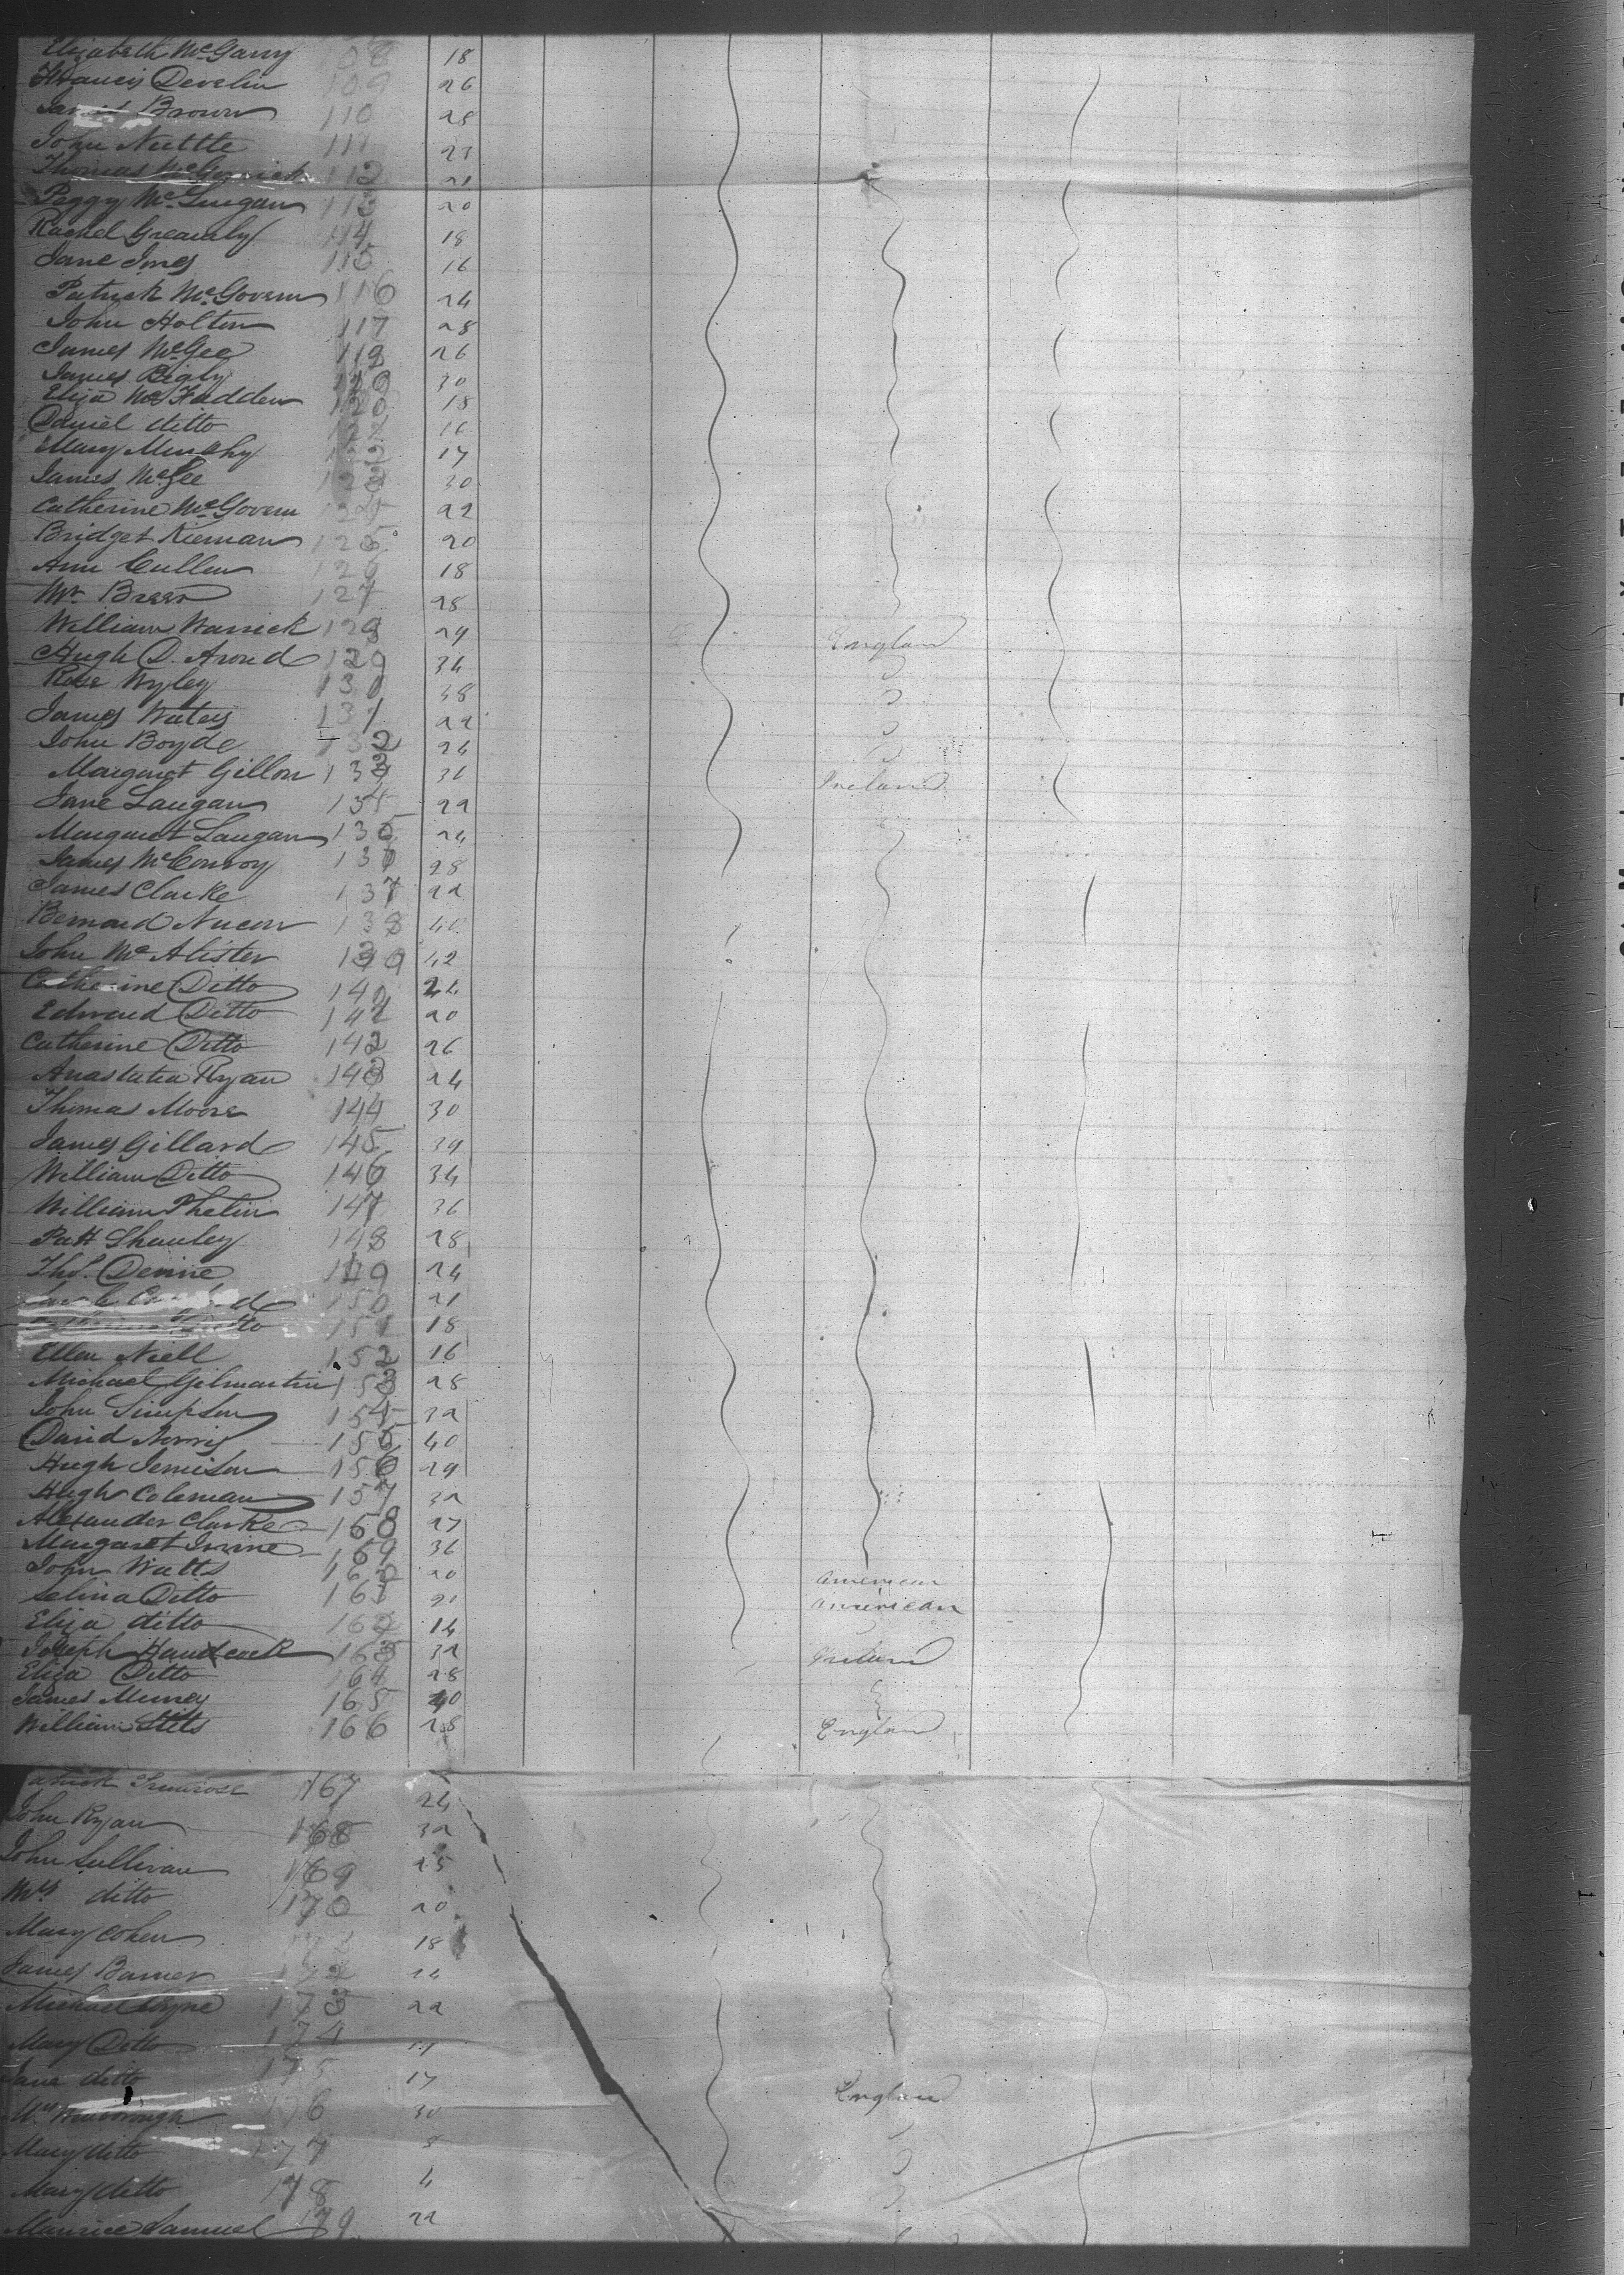 Elizabeth McGarry 108 18
Francis Develin 109 26
James Brown 110 28
John Nuttle 111 23
Thomas 112 21
Peggy McGuigan 113 20
Rachel 114 18
Jane Imes 115 16
Patrick McGovern 116 24
John Holton 117 28
James McGee 118 26
James Bigly 119 30
Eliza McFadden 120 18
Daniel ditto 121 16
Mary Murphy 122 17
James McGee 123 30
Catherine McGovern 124 22
Bridget Kiernan 125 20
Ann Cullen 126 18
Mr. 127 28
William Warrick 128 29 England
Hugh D. 129 34
Rose Wyley 130 38
James Waters 131 22
John Boyde 132 24
Margaret Gillon 133 36 Ireland
Jane Laugan 134 22
Margaret Laugan 135 24
James McConroy 136 28
James Clarke 137 22
Bernard 138 40
John McAlister 139 42
Catherine Ditto 140 24
Edward Ditto 141 20
Catherine Ditto 142 26
Anastatia Ryan 143 24
Thomas Moore 144 30
James Gillard 145 39
William Ditto 146 34
William Phelin 147 36
Patt Shanley 148 28
Ths. Devine 149 24
150 21
Ditto 151 18
Ellen Niell 152 16
Michael Gilmartin 153 28
John Simpson 154 32
David Norris 155 40
Hugh Jemison 156 29
Hugh Coleman 157 32
Alexander Clarke 158 27
Margaret Irvine 159 36
John Watts 160 20 American
Selina Ditto 161 21 American
Eliza ditto 162 14
Joseph Handcock 163 32 Ireland
Eliza Ditto 164 28
James Murrey 165 40
William Stits 166 28 England
Patrick Primrose 167 24
John Ryan 168 32
John Sullivan 169 25
Mrs ditto 170 20
Mary Cohen 171 18
James Barner 172 24
Michael Wyne 173 22
Mary Ditto 174
Jane ditto 175 17 England
Mrs 176 30
Mary ditto 177 8
Mary ditto 178 4
Maurice Samuel 179 22